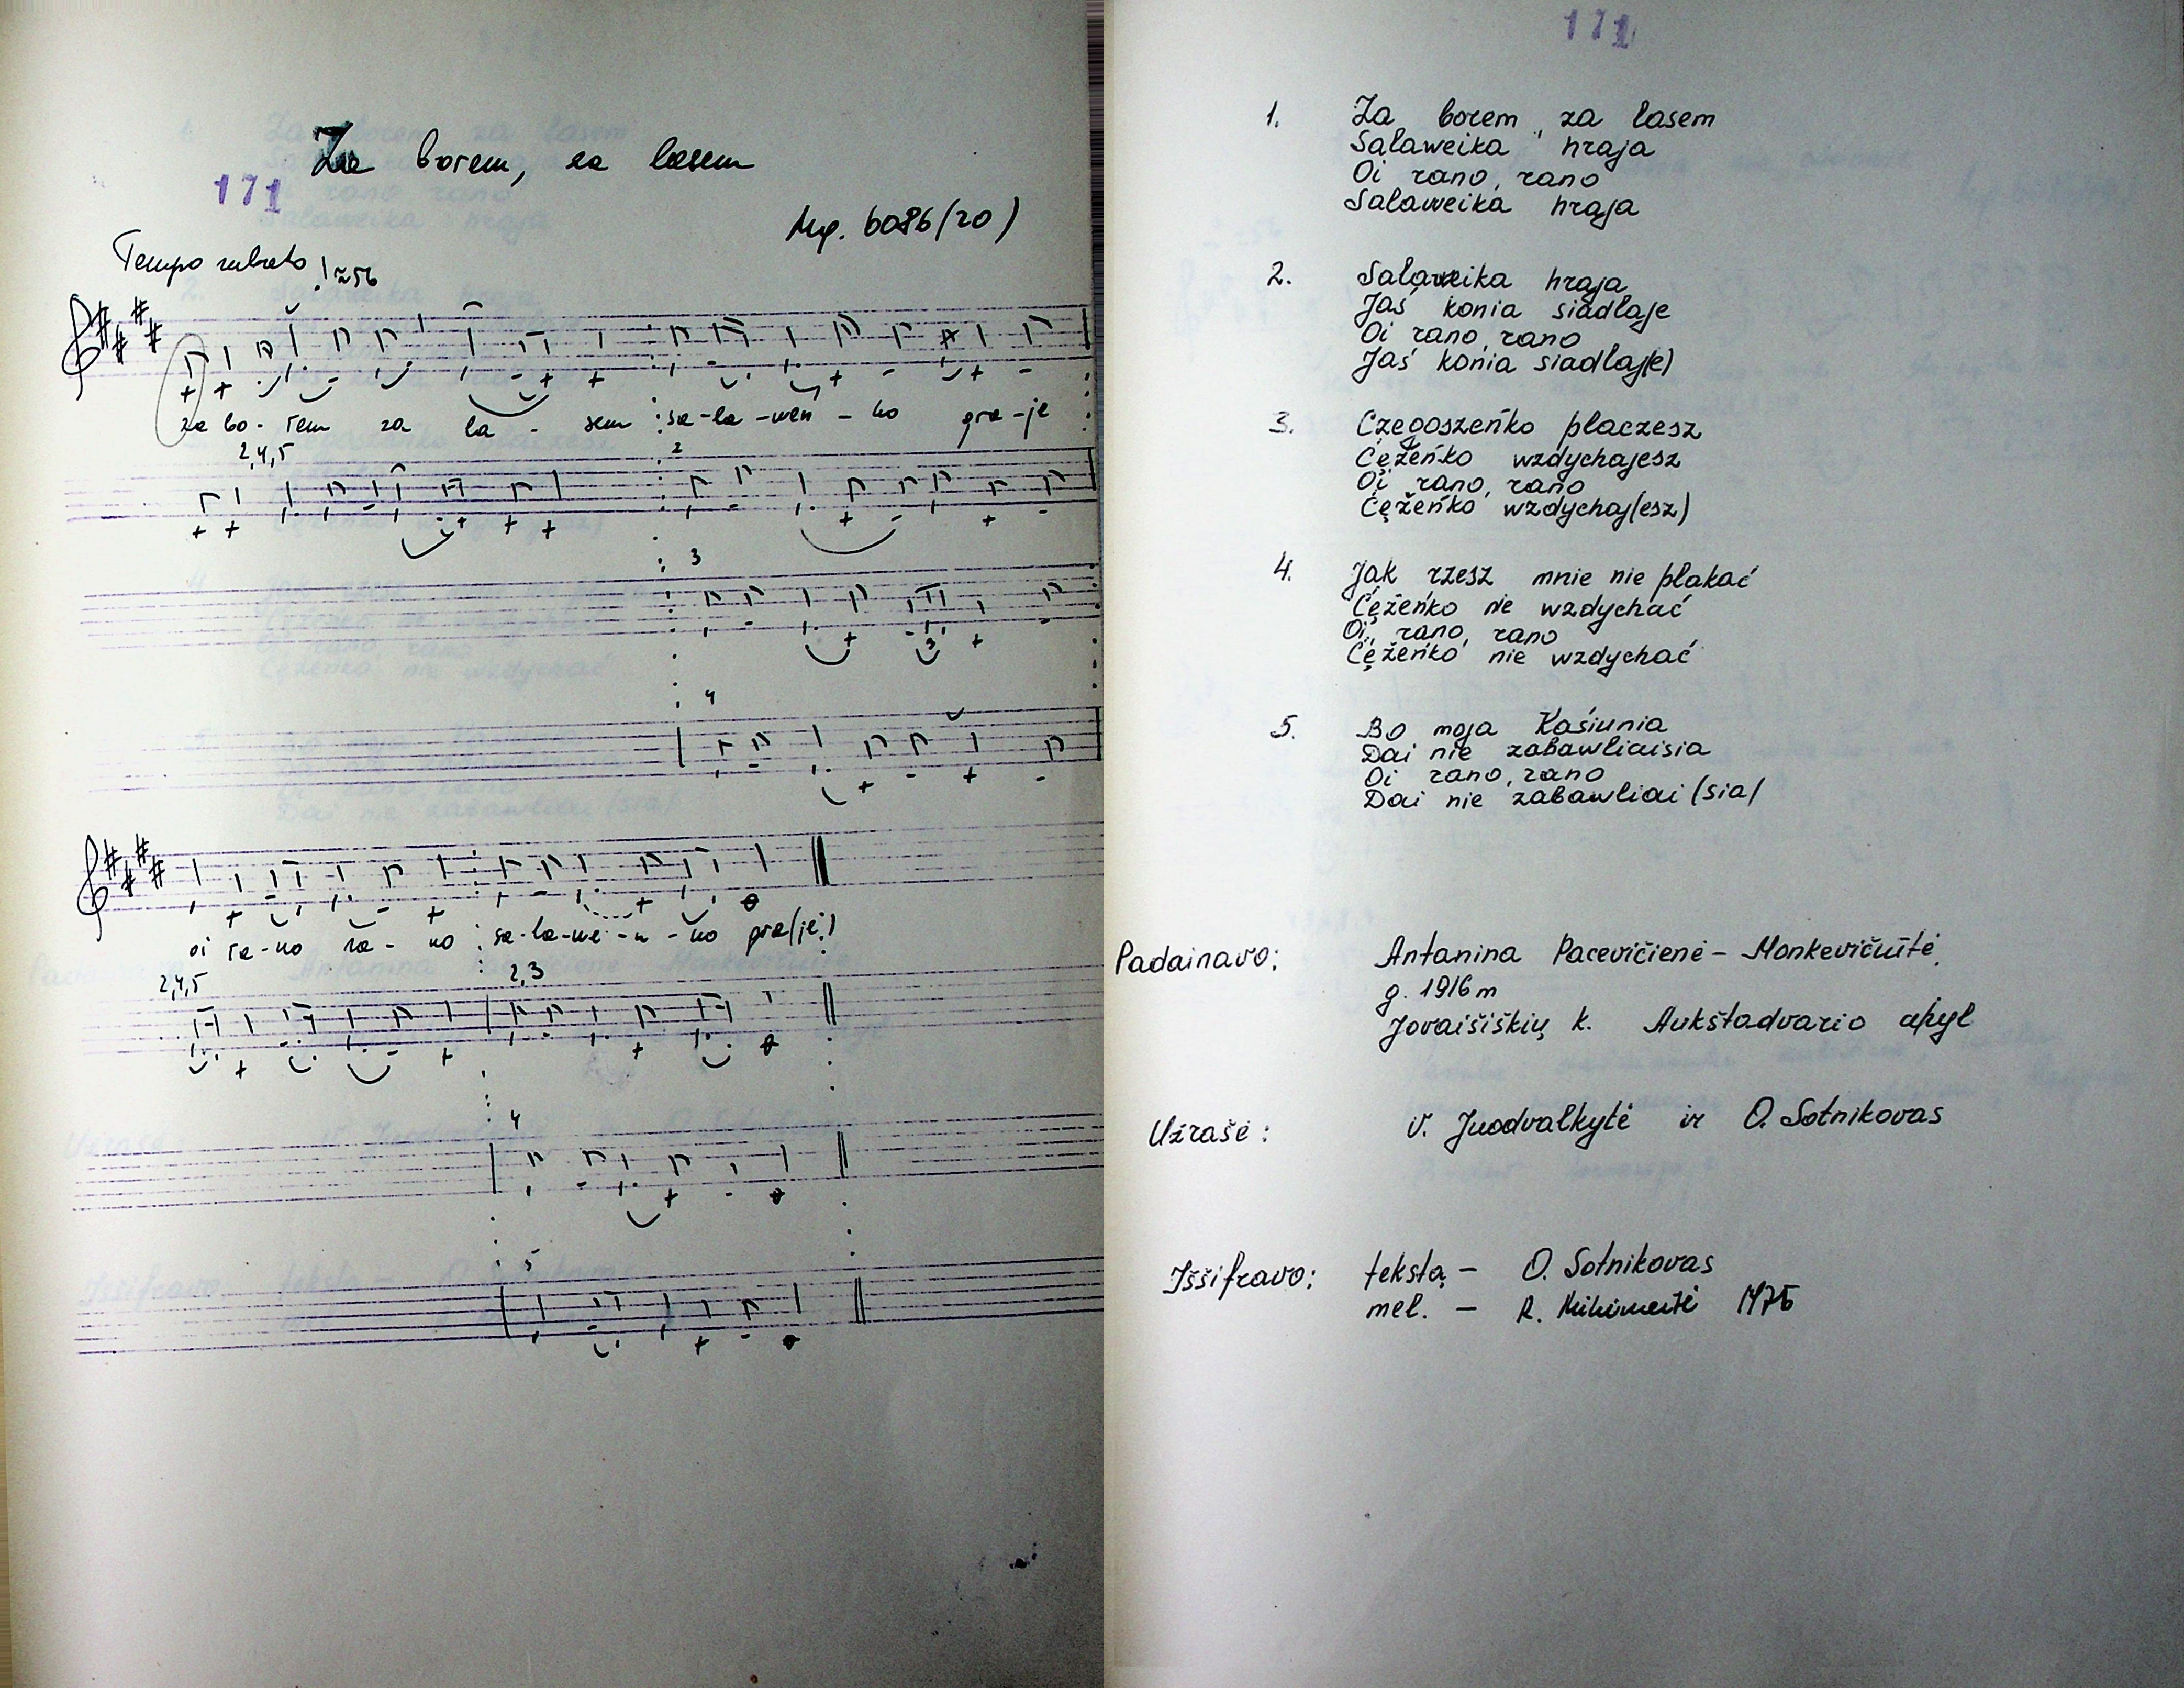 Za borem, za lasem
171
Mg. 6086(20)
Tempo rubato ≈56
za bo- rem za la - sem sa-la-wen - ko gra-je
2,4,5 2
3
4
oi ra-no ra- no sa-la-we-n-ko gra(je)
2,4,5 2,3
4
5
171
1. Za borem, za lasem
Salaweika hraja
Oi rano, rano
Salaweika hraja
2. Salaweika hraja
Jaś konia siadlaje
Oi rano, rano
Jaś konia siadlaj(e)
3. Czegoszeńko placzesz
Cężeńko wzdychajesz
Oi rano, rano
Cężeńko wzdychaj(esz)
4. Jak rzesz mnie nie plakać
Cężeńko nie wzdychać
Oi, rano, rano
Cężeńko nie wzdychać
5. Bo moja Kaśiunia
Dai nie zabawliaisia
Oi rano, rano
Dai nie zabawliai (sia)
Padainavo: Antanina Pacevičienė - Monkevičiūtė,
g. 1916 m
Jovaišiškių k. Aukštadvario apyl
Užrašė: V. Juodvalkytė ir O. Sotnikovas
Iššifravo: tekstą - O. Sotnikovas
mel. - R.